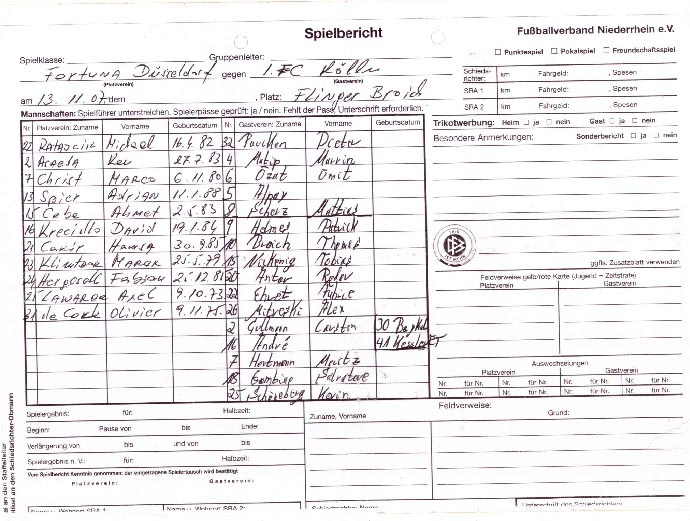 Spielbericht
Fußballverband Niederrhein e.V.
Spielklasse: Gruppenleiter:
Punktespiel Pokalspiel Freundschaftsspiel
Fortuna Düsseldorf gegen 1. FC Köln
(Platzverein) (Gastverein)
Schiedsrichter: km Fahrgeld: , Spesen
SRA 1 km Fahrgeld: , Spesen
SRA 2 km Fahrgeld: , Spesen
am 13.11.07 dem , Platz: Flinger Broich
Mannschaften: Spielführer unterstreichen. Spielerpässe geprüft: ja / nein. Fehlt der Pass, Unterschrift erforderlich.
Trikotwerbung: Heim ja nein Gast ja nein
Nr. Platzverein: Zuname Vorname Geburtsdatum Nr. Gastverein: Zuname Vorname Geburtsdatum
Besondere Anmerkungen: Sonderbericht ja nein
22 Michael 16.4.82 32 Paucken Dieter
2 27.7.83 4 Matip Marvin
7 Christ Marco 6.11.80 6 Özat Ümit
13 Spier Adrian 11.1.88 5 Alpay
15 Cebe Ahmet 2.5.83 8 Scherz Matthias
16 Krecidlo David 19.1.84 9 Patrick
21 Cakir Hamsa 30.9.85 Broich Thomas
23 Klimtone Marok 25.5.79 Tobias
25.12.81 Antar
Lawarée Axel 9.10.73 22 Ehret Fabrice
de Cock Olivier 9.11.75 26 Mitreski Alex
2 Gullmann Carsten 30 Bephel
16 André 41 Kessler
7 Hartmann Moritz
18 Gambino Salvatore
25 Schöneberg Kevin
DFB
ggfls. Zusatzblatt verwenden
Feldverweise gelb/rote Karte (Jugend – Zeitstrafe)
Platzverein Gastverein
Auswechselungen
Platzverein Gastverein
Nr. für Nr. Nr. für Nr. Nr. für Nr. Nr. für Nr.
Nr. für Nr. Nr. für Nr. Nr. für Nr. Nr. für Nr.
Spielergebnis: für: Halbzeit:
Beginn: Pause von bis Ende:
Verlängerung von bis und von bis
Spielergebnis n. V.: für: Halbzeit:
Vom Spielbericht Kenntnis genommen; der eingetragene Spielertausch wird bestätigt
Platzverein: Gastverein:
Zuname, Vorname
Feldverweise:
Grund:
Name u. Wohnort SRA 1: Name u. Wohnort SRA 2: Schiedsrichter Name Unterschrift des Schiedsrichters